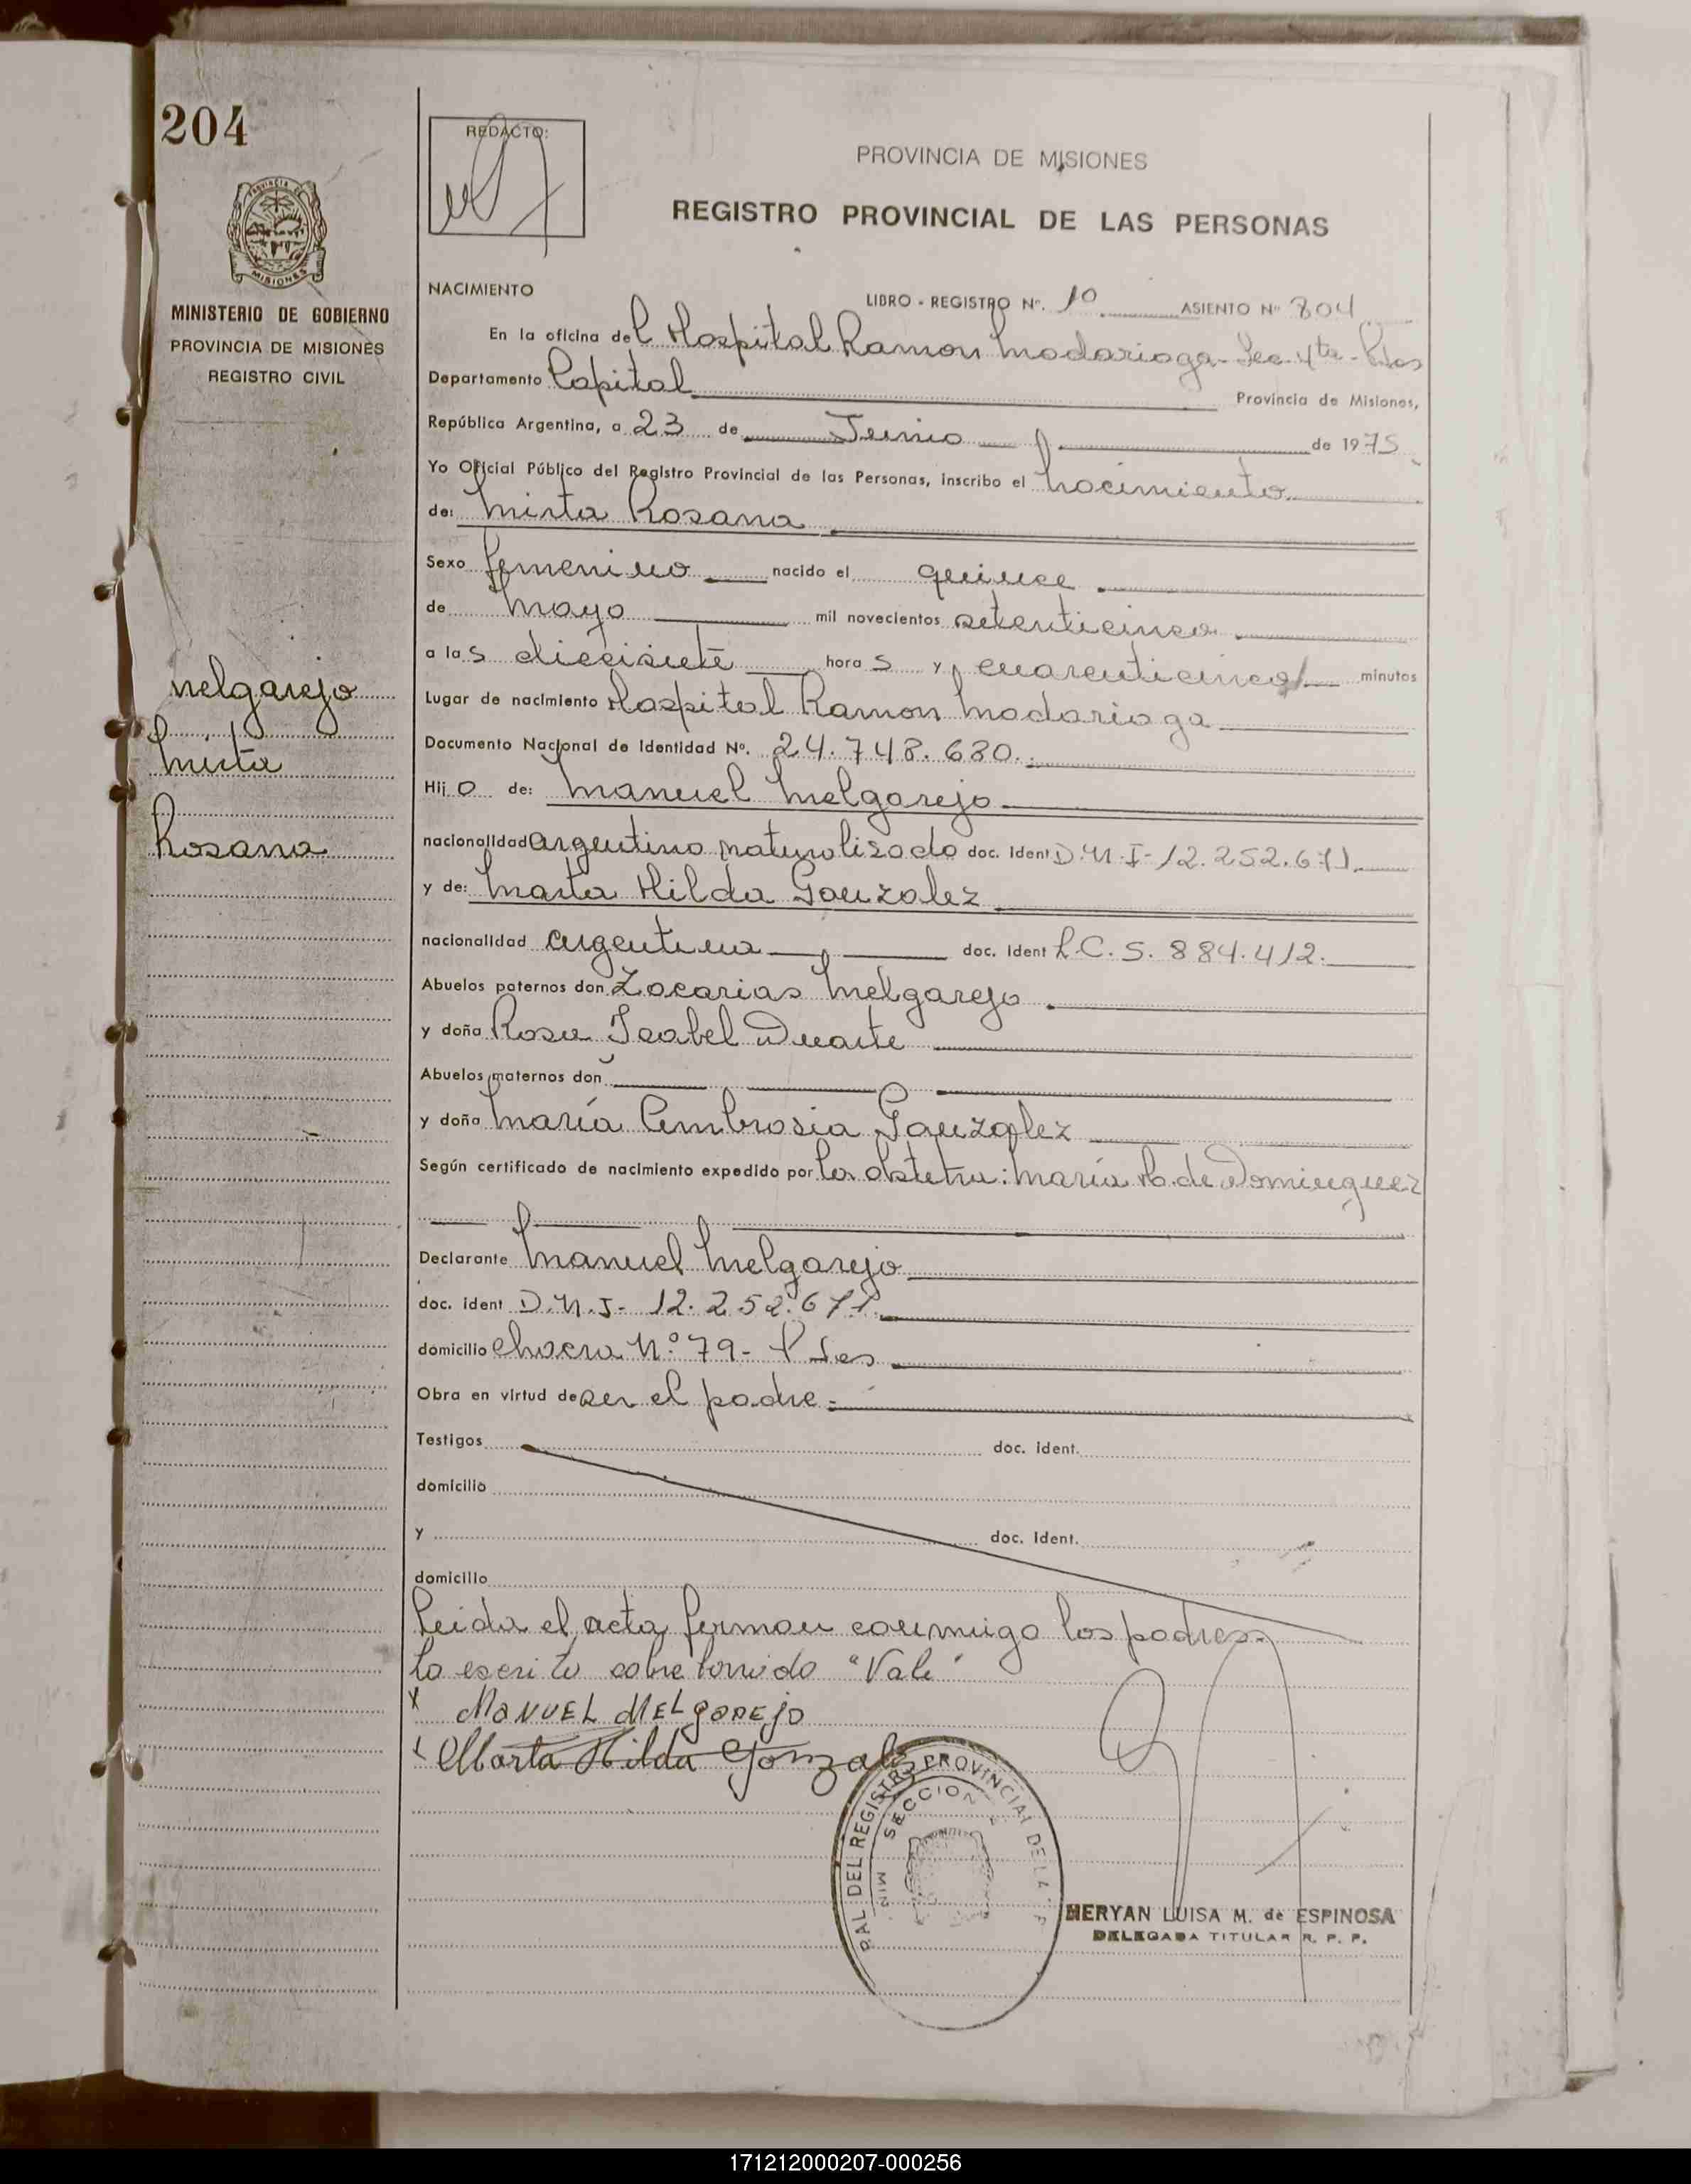 204
MINISTERIO DE GOBIERNO
PROVINCIA DE MISIONES
REGISTRO CIVIL
Melgarejo
Mirta
Rosana
REDACTO:
PROVINCIA DE MISIONES
REGISTRO PROVINCIAL DE LAS PERSONAS
NACIMIENTO
LIBRO - REGISTRO Nº. 10 ASIENTO Nº 804
En la oficina del Hospital Ramon Madariaga - Sec. 4ta - Pdas
Departamento Capital Provincia de Misiones,
República Argentina, a 23 de Junio de 1975
Yo Oficial Público del Registro Provincial de las Personas, inscribo el nacimiento
de: Mirta Rosana
Sexo femenino nacido el quince
de mayo mil novecientos setenticinco
a las diecisiete horas y cuarenticinco minutos
Lugar de nacimiento Hospital Ramon Madariaga
Documento Nacional de Identidad Nº. 24.748.680.
Hijo de: Manuel Melgarejo
nacionalidad argentino naturalizado doc. Ident D.N.I- 12.252.671
y de: Marta Hilda Gonzalez
nacionalidad argentina doc. Ident L.C. 5.884.412.
Abuelos paternos don Zacarias Melgarejo
y doña Rosa Isabel Duarte
Abuelos maternos don
y doña María Ambrosia Gonzalez
Según certificado de nacimiento expedido por la obstetra: María R. de Dominguez
Declarante Manuel Melgarejo
doc. ident D.N.I- 12.252.671
domicilio Chacra Nº 79- Pdas
Obra en virtud de ser el padre.
Testigos doc. ident.
domicilio
y doc. Ident.
domicilio
Leida el acta firman conmigo los padres.
Lo escrito sobre borrado "Vale"
x MANUEL MELGAREJO
x Marta Hilda Gonzalez
RAL DEL REGISTRO PROVINCIAL DE LA P
SECCION
MIN
MERYAN LUISA M. de ESPINOSA
DELEGADA TITULAR R. P. P.
171212000207-000256